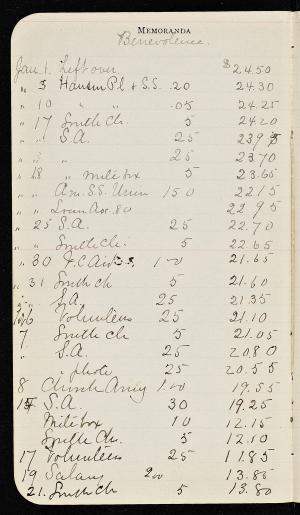 MEMORANDA
Benevolence.
Jan. 1. Left over. $24.50
" 3 Hanson Pl. & S.S. .20 24.30
" 10 " " .05 24.25
" 17 Smith Ch. 5 24.20
" " S.A. 25 23.95
" " " 25 23.70
" 18 " mite box 5 23.65
" " Am. S.S. Union 150 22.15
" " Loan Asr. 80 22.95
" 25 S.A. 25 22.70
" " Smith Ch. 5 22.65
" 30 F.C. Aid 1.00 21.65
" 31 Smith Ch 5 21.60
" " S.A. 25 21.35
6 Volunteers 25 21.10
7 Smith Ch 5 21.05
" S.A. 25 20.80
" " photo 25 20.55
8 Church Army 1.00 19.55
S.A. 30 19.25
Mite box 10 12.15
Smith Ch. 5 12.10
17 Volunteers 25 11.85
19 Salary 2.00 13.85
21. Smith Ch 5 13.80